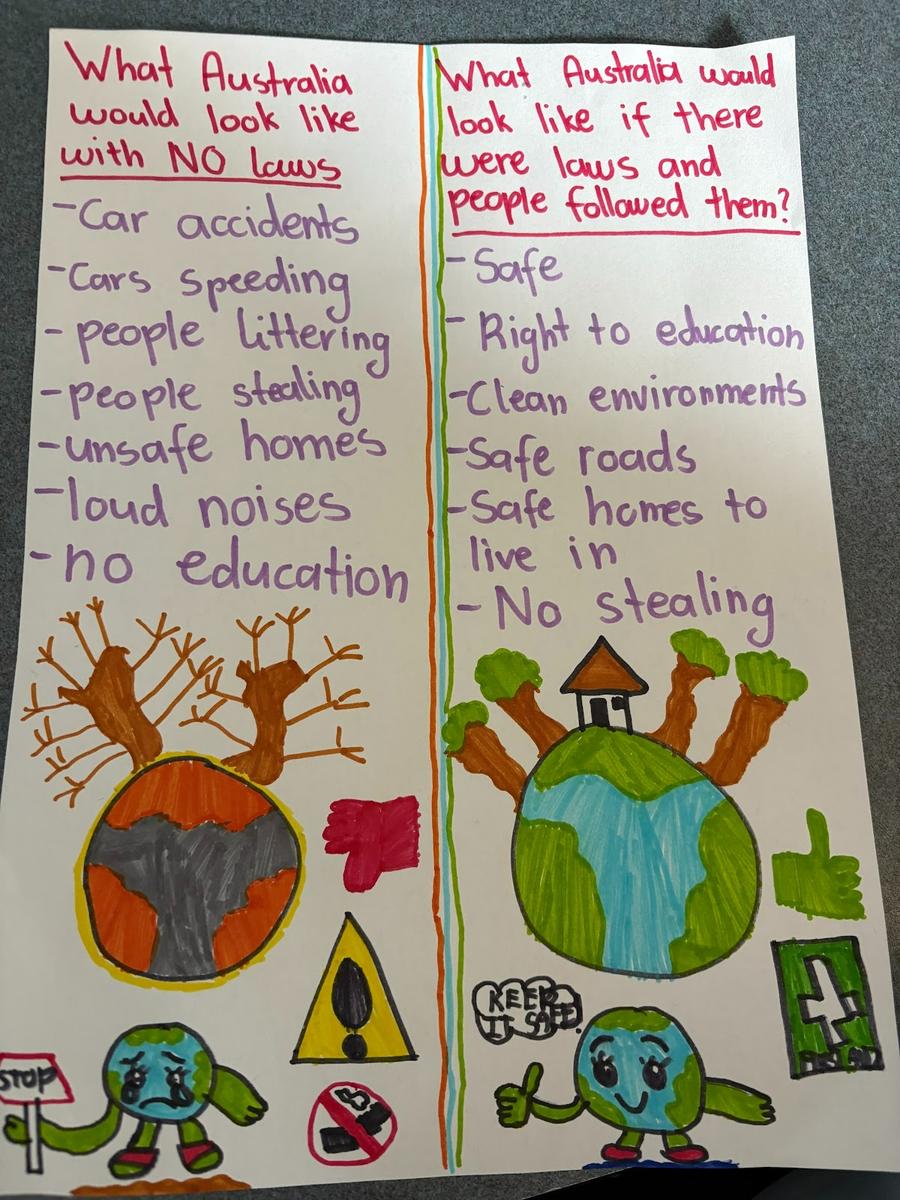 What Australia
would look like
with NO laws
- Car accidents
- Cars speeding
- people littering
- people stealing
- unsafe homes
- loud noises
- no education
STOP
What Australia would
look like if there
were laws and
people followed them?
- Safe
- Right to education
- Clean environments
- Safe roads
- Safe homes to
live in
- No stealing
KEEP
IT SAFE!
FIRST AID